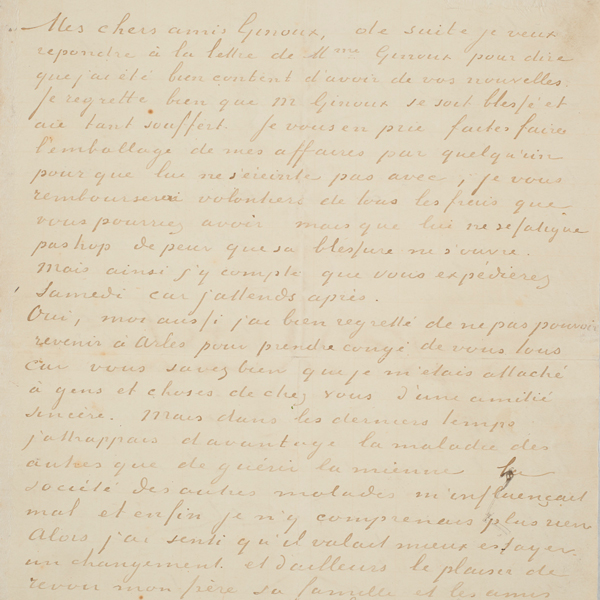 Mes chers amis Ginoux, de suite je veux
repondre à la lettre de Mme Ginoux pour dire
que j'ai été bien content d'avoir de vos nouvelles.
Je regrette bien que Mr Ginoux se soit blessé et
aie tant souffert. Je vous en prie faites faire
l'emballage de mes affaires par quelqu'un
pour que lui ne s'éreinte pas avec, je vous
rembourserai volontiers de tous les frais que
vous pourriez avoir mais que lui ne se fatigue
pas trop de peur que sa blessure ne s'ouvre.
Mais ainsi j'y compte que vous expédierez
Samedi car j'attends après.
Oui, moi aussi j'ai bien regretté de ne pas pouvoir
revenir à Arles pour prendre congé de vous tous
Car vous savez bien que je m'étais attaché
à gens et choses de chez vous d'une amitié
sincère. Mais dans les derniers temps
j'attrappais davantage la maladie des
autres que de guérir la mienne La
société des autres malades m'influençait
mal et enfin je n'y comprenais plus rien
Alors j'ai senti qu'il valait mieux essayer
un changement et d'ailleurs le plaisir de
revoir mon frère sa famille et les amis